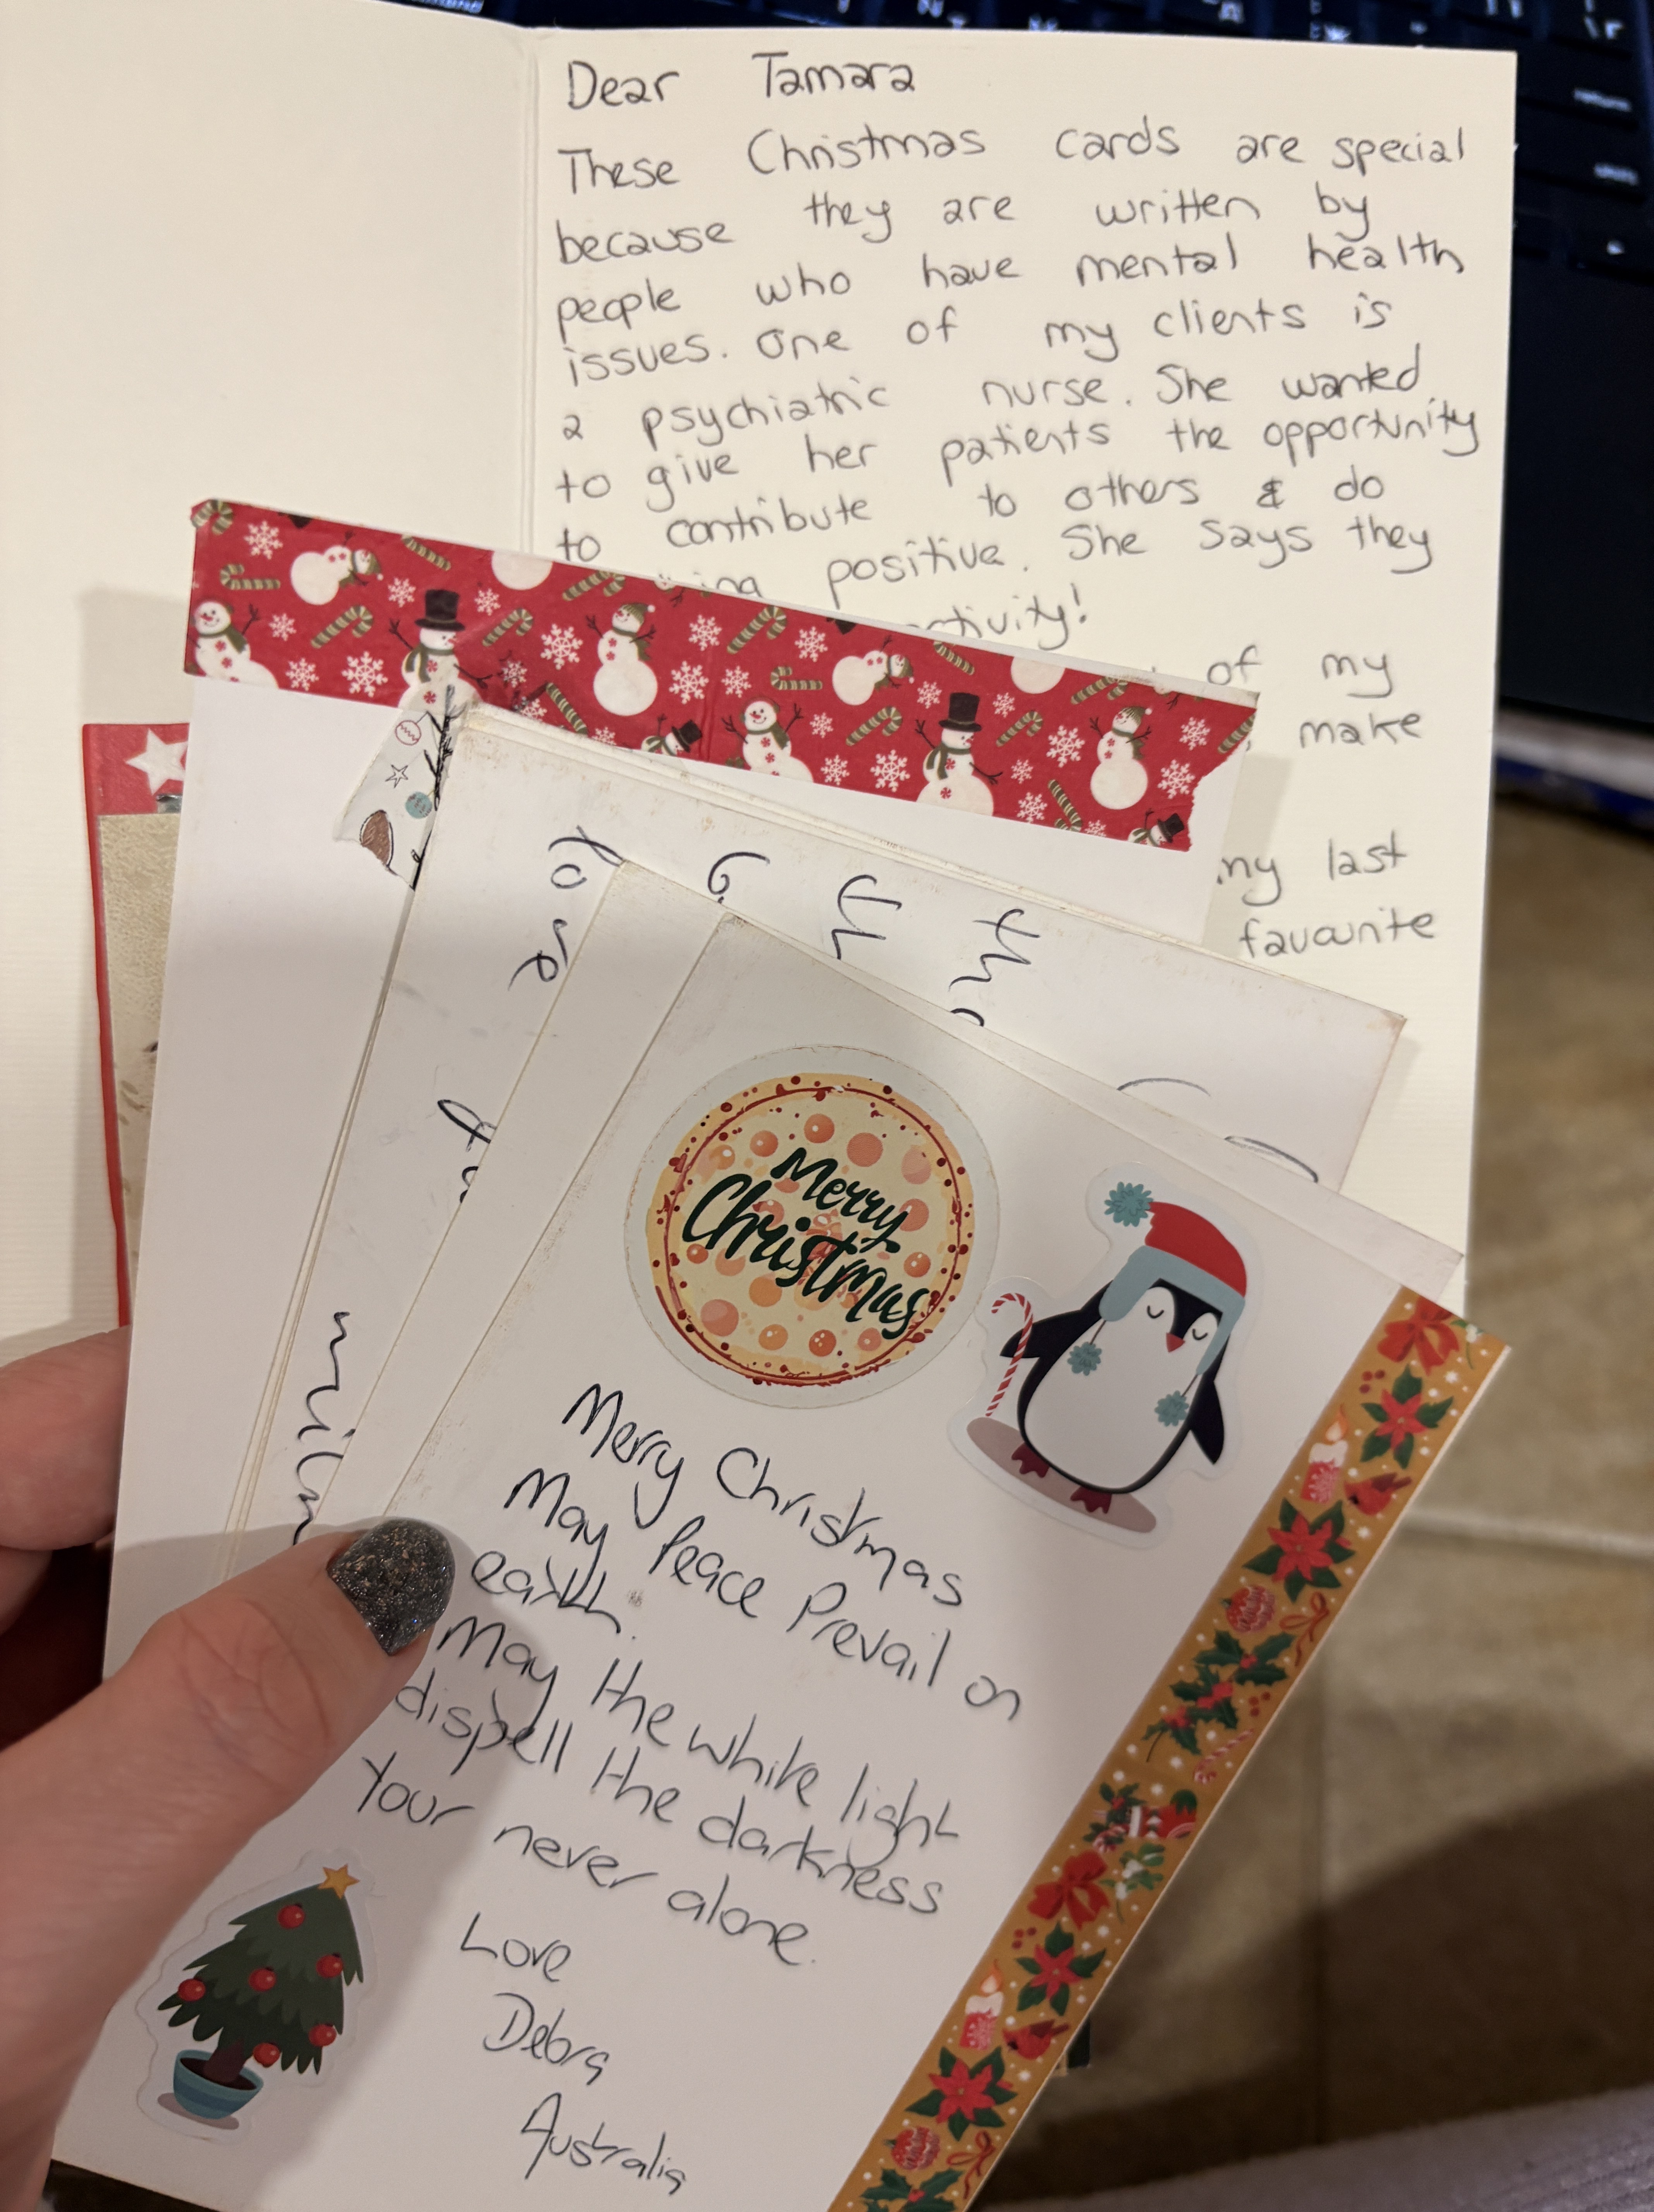 Dear Tamara
These Christmas cards are special
because they are written by
people who have mental health
issues. One of my clients is
a psychiatric nurse. She wanted
to give her patients the opportunity
to contribute to others & do
to positive. She says they
of my
make
last
favourite
Merry
Christmas
Merry Christmas
May Peace Prevail on
earth.
May the white light
dispell the darkness
Your never alone.
Love
Debra
Australia